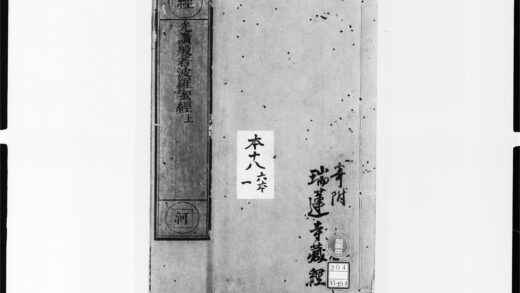 光讃般若波羅蜜經上
河
本十八
六本
一
寄附
瑞蓮寺藏經
204